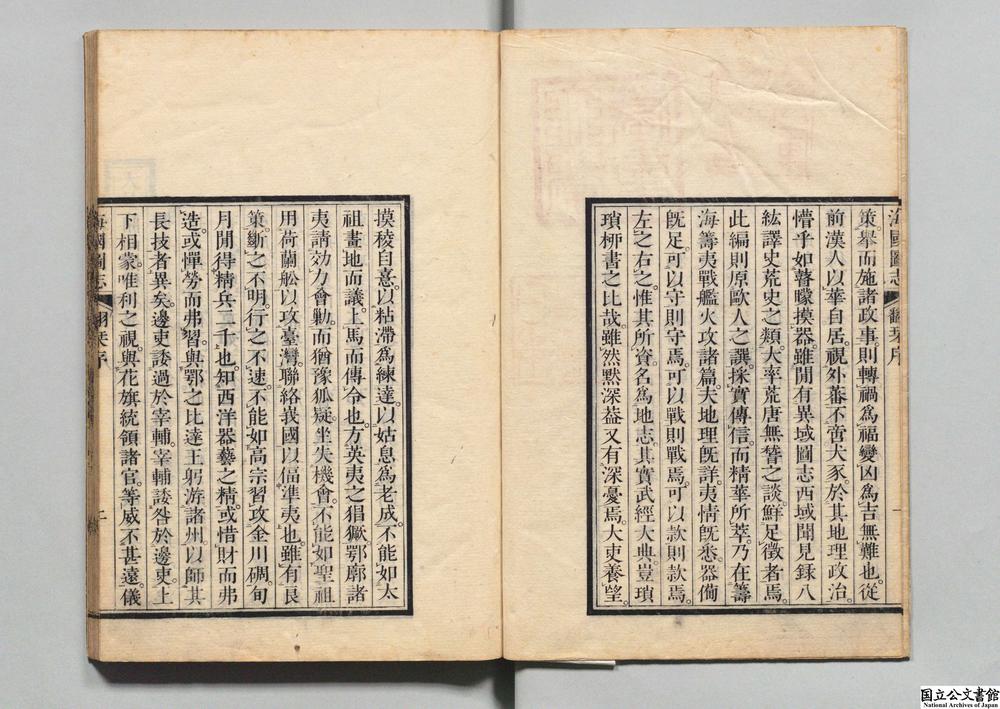 海國圖志 翻栞序 一
策。舉而施諸政事。則轉禍爲福。變凶爲吉無難也。從
前漢人以華自居。視外蕃不啻犬豕。於其地理政治。
懵乎如瞽矇摸器。雖間有異域圖志西域聞見錄八
紘譯史荒史之類。大率荒唐無聱之談。鮮足徵者焉。
此編則原歐人之譔。採實傳信。而精華所萃。乃在籌
海籌夷戰艦火攻諸篇。夫地理旣詳。夷情旣悉。器備
旣足。可以守則守焉。可以戰則戰焉。可以款則款焉。
左之右之。惟其所資。名爲地志。其實武經大典。豈瑣
瑣柳書之比哉。雖然默深葢又有深憂焉。大吏養望
摸稜自憙。以粘滯爲練達。以姑息爲老成。不能如太
祖畫地而議上馬而傳令也。方英夷之猖獗。鄂廓諸
夷請効力會勦。而猶豫狐疑。坐失機會。不能如聖祖
用荷蘭舩以攻臺灣。聯絡我國以偪準夷也。雖有良
策。斷之不明。行之不速。不能如高宗習攻金川碉。旬
月閒得精兵二千也。知西洋器藝之精。或惜財而弗
造。或憚勞而弗習。與鄂之比達王躬游諸州以師其
長技者異矣。邊吏諉過於宰輔。宰輔諉咎於邊吏。上
下相蒙。唯利之視。與花旗統領諸官。等威不甚遠。儀
海國圖志 翻栞序 二
国立公文書館
National Archives of Japan